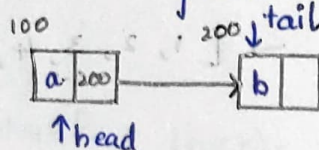 100
200 tail
a 200 b
head